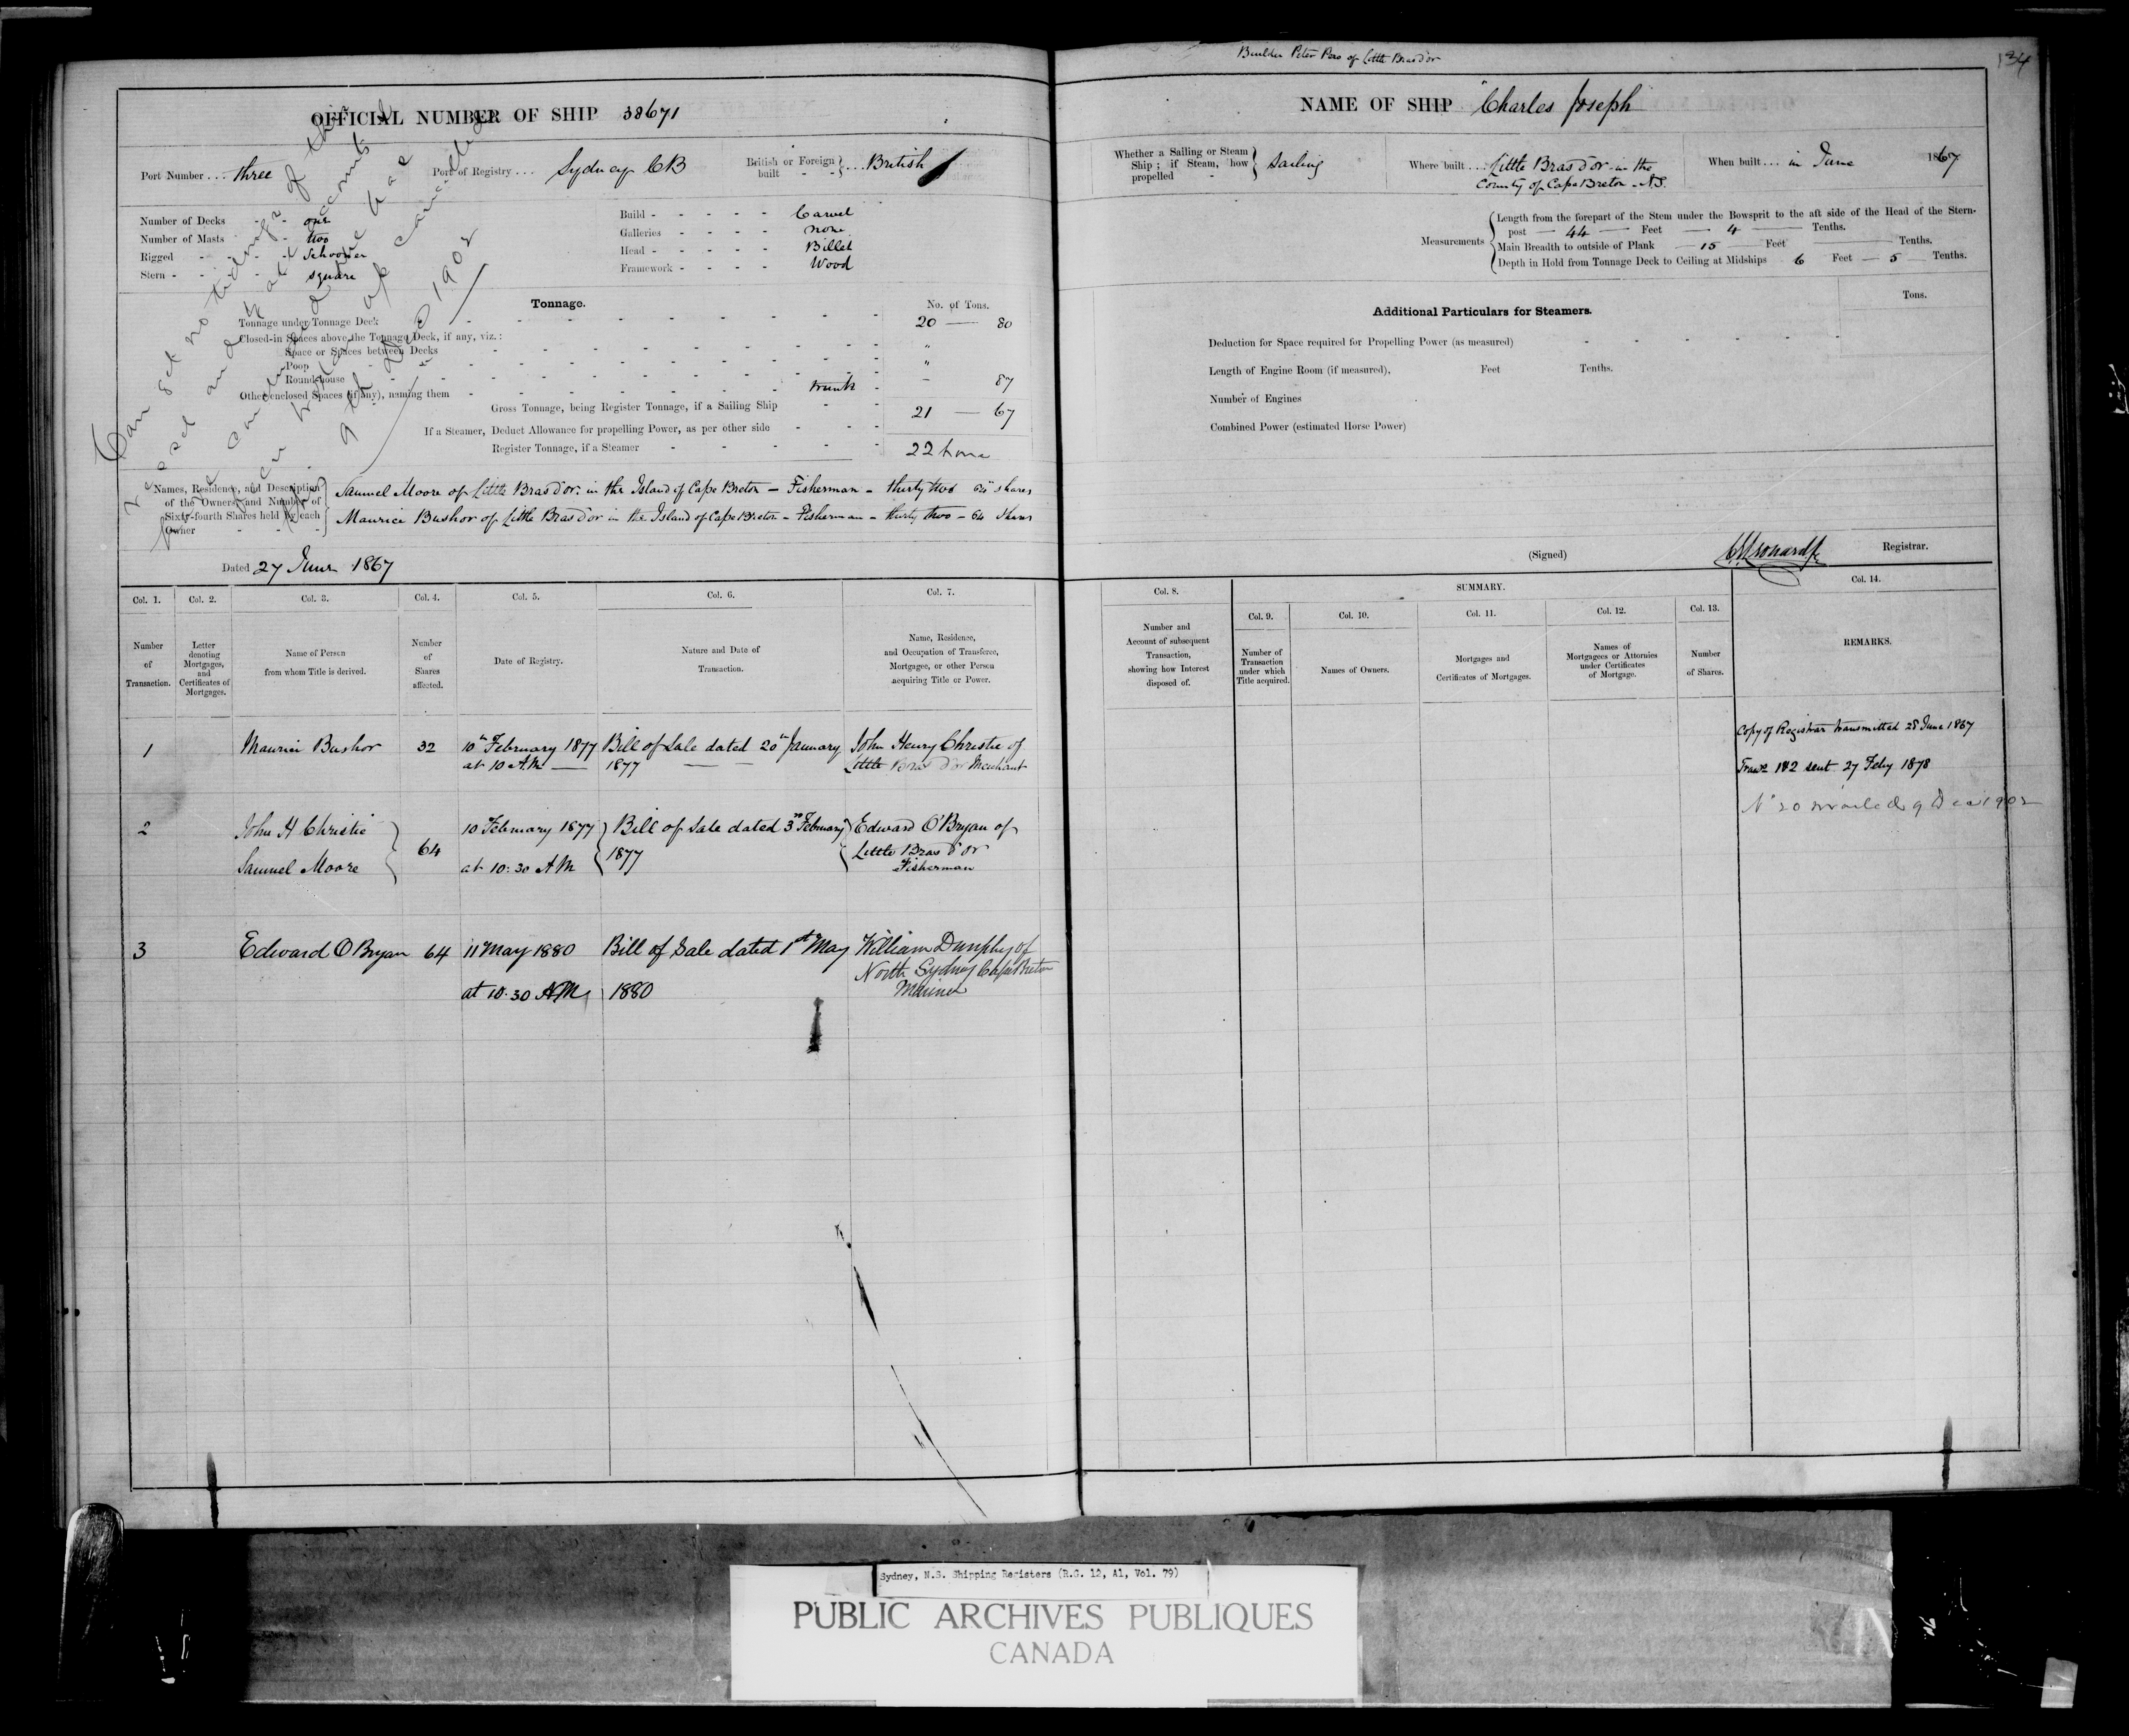 Builder Peter Pero of Little Bras d'or
134
OFFICIAL NUMBER OF SHIP 38671
NAME OF SHIP "Charles Joseph
Port Number ... three
Port of Registry ... Sydney CB
British or Foreign built ... British
Whether a Sailing or Steam Ship; if Steam, how propelled - Sailing
Where built ... Little Bras d'or in the County of Cape Breton N.S.
When built ... in June 1867
Number of Decks - - one
Number of Masts - two
Rigged - - - Schooner
Stern - - - square
Build - - - - - Carvel
Galleries - - - - none
Head - - - - - Billet
Framework - - - - Wood
Measurements
Length from the forepart of the Stem under the Bowsprit to the aft side of the Head of the Stern-
post — 44 — Feet — 4 — Tenths.
Main Breadth to outside of Plank — 15 — Feet — Tenths.
Depth in Hold from Tonnage Deck to Ceiling at Midships 6 Feet — 5 — Tenths.
Tonnage.
No. of Tons.
Tonnage under Tonnage Deck 20 — 80
Closed-in Spaces above the Tonnage Deck, if any, viz.:
Space or Spaces between Decks "
Poop "
Roundhouse
Other enclosed Spaces (if any), naming them trunk - 87
Gross Tonnage, being Register Tonnage, if a Sailing Ship 21 — 67
If a Steamer, Deduct Allowance for propelling Power, as per other side
Register Tonnage, if a Steamer 22 tons
Additional Particulars for Steamers.
Tons.
Deduction for Space required for Propelling Power (as measured)
Length of Engine Room (if measured), Feet Tenths.
Number of Engines
Combined Power (estimated Horse Power)
Can get no tidings of this
vessel and
9th Dec 1902
Names, Residence, and Description of the Owners, and Number of Sixty-fourth Shares held by each Owner
Samuel Moore of Little Bras d'or in the Island of Cape Breton – Fisherman – thirty two 64th shares
Maurice Bushor of Little Bras d'or in the Island of Cape Breton – Fisherman – thirty two – 64 shares
Dated 27 June 1867
(Signed) Registrar.
Col. 1.
Number of Transaction.
Col. 2.
Letter denoting Mortgages, and Certificates of Mortgages.
Col. 3.
Name of Person from whom Title is derived.
Col. 4.
Number of Shares affected.
Col. 5.
Date of Registry.
Col. 6.
Nature and Date of Transaction.
Col. 7.
Name, Residence, and Occupation of Transferee, Mortgagee, or other Person acquiring Title or Power.
Col. 8.
Number and Account of subsequent Transaction, showing how Interest disposed of.
SUMMARY.
Col. 9.
Number of Transaction under which Title acquired.
Col. 10.
Names of Owners.
Col. 11.
Mortgages and Certificates of Mortgages.
Col. 12.
Names of Mortgagees or Attornies under Certificates of Mortgage.
Col. 13.
Number of Shares.
Col. 14.
REMARKS.
1 Maurice Bushor 32 10th February 1877 Bill of Sale dated 20th January John Henry Christie of
at 10 A.M. — 1877 Little Bras d'or Merchant
2 John H Christie 10 February 1877 Bill of Sale dated 3rd February Edward O'Bryan of
64 1877 Little Bras d'or
Samuel Moore at 10:30 AM Fisherman
3 Edward O Bryan 64 11 May 1880 Bill of Sale dated 1st May William Dunphy of
North Sydney Cape Breton
at 10.30 AM 1880 Mariner
Copy of Registrar transmitted 28 June 1867
Trans 1&2 sent 27 Feby 1878
No 20 mailed 9 Dec 1902
Sydney, N.S. Shipping Registers (R.G. 12, A1, Vol. 79)
PUBLIC ARCHIVES PUBLIQUES
CANADA